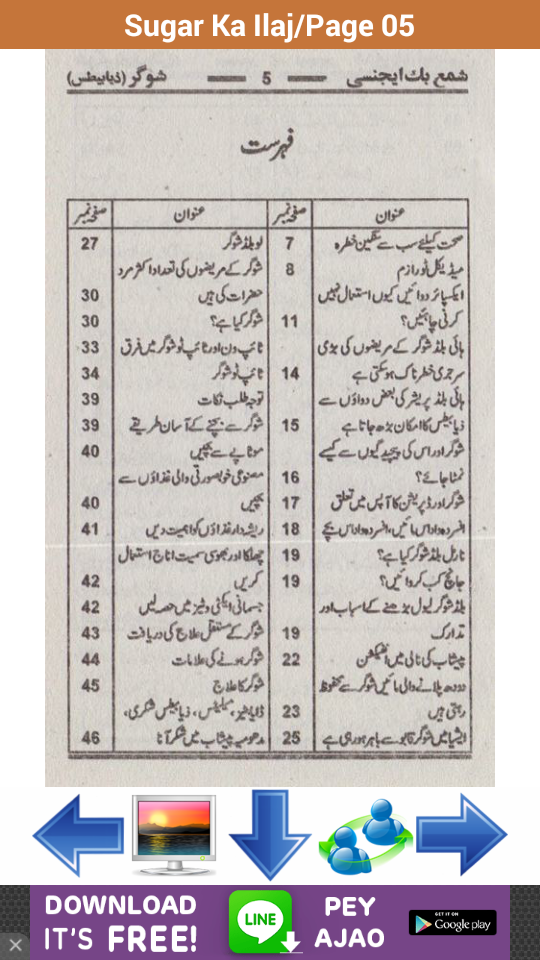 Sugar Ka Ilaj/Page 05
شمع بک ایجنسی — 5 — شوگر (ذیابیطس)
فہرست
عنوان صفحہ نمبر
صحت کیلئے سب سے سنگین خطرہ 7
میڈیکل ٹورازم 8
ایکسپائر دوائیں کیوں استعمال نہیں
کرنی چاہئیں؟ 11
ہائی بلڈ شوگر کے مریضوں کی بڑی
سرجری خطرناک ہوسکتی ہے 14
ہائی بلڈ پریشر کی بعض دواؤں سے
ذیابیطس کا امکان بڑھ جاتا ہے 15
شوگر اور اس کی پیچیدگیوں سے کیسے
نمٹا جائے؟ 16
شوگر اور ڈپریشن کا آپس میں تعلق 17
افسردہ و اداس مائیں، افسردہ و اداس بچے 18
نارمل بلڈ شوگر کیا ہے؟ 19
جانچ کب کروائیں؟ 19
بلڈ شوگر لیول بڑھنے کے اسباب اور
تدارک 19
پیشاب کی نالی میں انفیکشن 22
دودھ پلانے والی مائیں شوگر سے محفوظ
رہتی ہیں 23
ایشیا میں شوگر قابو سے باہر ہو رہی ہے 25
عنوان صفحہ نمبر
لو بلڈ شوگر 27
شوگر کے مریضوں کی تعداد اکثر مرد
حضرات کی ہیں 30
شوگر کیا ہے؟ 30
ٹائپ ون اور ٹائپ ٹو شوگر میں فرق 33
ٹائپ ٹو شوگر 34
توجہ طلب نکات 39
شوگر سے بچنے کے آسان طریقے 39
موٹاپے سے بچیں 40
مصنوعی خوبصورتی والی غذاؤں سے
بچیں 40
ریشہ دار غذاؤں کو اہمیت دیں 41
چھلکا اور بھوسی سمیت اناج استعمال
کریں 42
جسمانی ایکٹی وٹیز میں حصہ لیں 42
شوگر کے مستقل علاج کی دریافت 43
شوگر ہونے کی علامات 44
شوگر کا علاج 45
ڈایابیٹیز، میلیٹس، ذیابیطس شکری،
مدھومیہ پیشاب میں شکر آنا 46
DOWNLOAD
IT'S FREE!
LINE
PEY
AJAO
GET IT ON
Google play